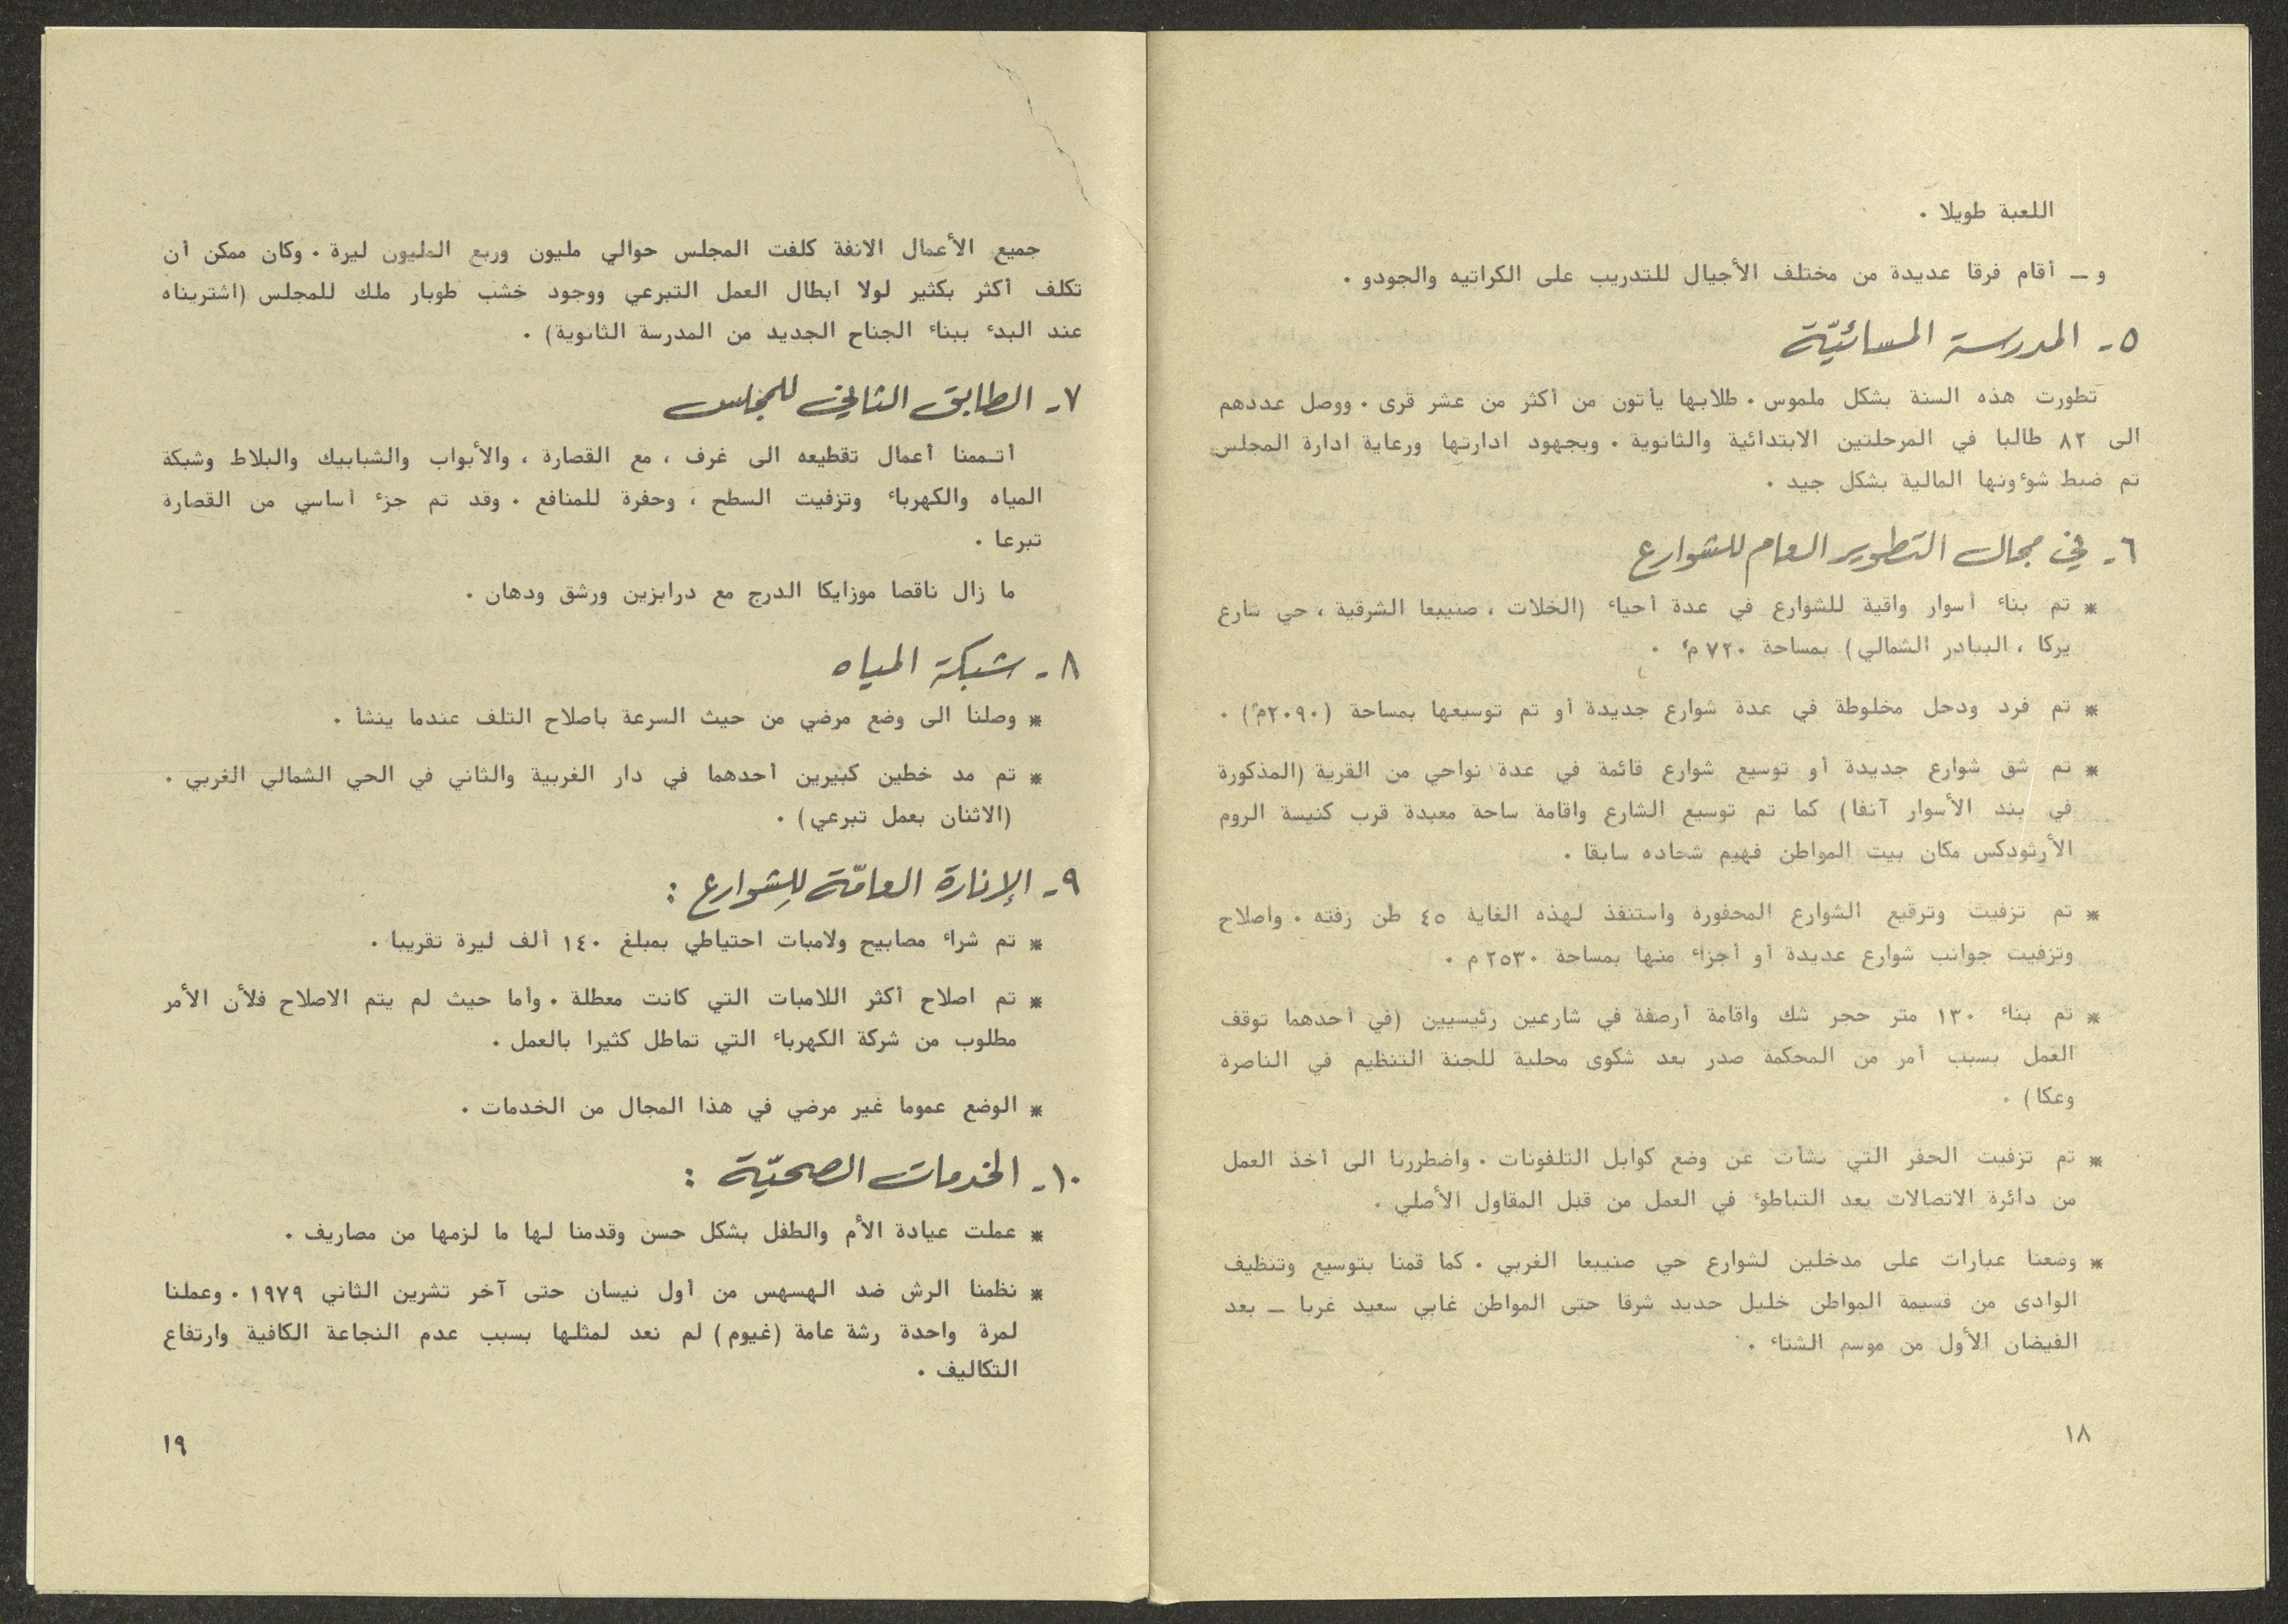 اللعبة طويلا .
و ــ أقام فرقا عديدة من مختلف الأجيال للتدريب على الكراتيه والجودو .
٥- المدرسة المسائيّة
تطورت هذه السنة بشكل ملموس . طلابها يأتون من أكثر من عشر قرى . ووصل عددهم
الى ٨٢ طالبا في المرحلتين الابتدائية والثانوية . وبجهود ادارتها ورعاية ادارة المجلس
تم ضبط شوٴونها المالية بشكل جيد .
٦- في مجال التطوير العام للشوارع
* تم بناء أسوار واقية للشوارع في عدة أحياء (الخلات ، صنيبعا الشرقية ، حي شارع
يركا ، البيادر الشمالي) بمساحة ٧٢٠ م٢ .
* تم فرد ودحل مخلوطة في عدة شوارع جديدة أو تم توسيعها بمساحة (٢٠٩٠م٢) .
* تم شق شوارع جديدة أو توسيع شوارع قائمة في عدة نواحي من القرية (المذكورة
في بند الأسوار آنفا) كما تم توسيع الشارع واقامة ساحة معبدة قرب كنيسة الروم
الأرثودكس مكان بيت المواطن فهيم شحاده سابقا .
* تم تزفيت وترقيع الشوارع المحفورة واستنفذ لهذه الغاية ٤٥ طن زفته . واصلاح
وتزفيت جوانب شوارع عديدة أو أجزاء منها بمساحة ٢٥٣٠ م .
* تم بناء ١٣٠ متر حجر شك واقامة أرصفة في شارعين رئيسيين (في أحدهما توقف
العمل بسبب أمر من المحكمة صدر بعد شكوى محلية للجنة التنظيم في الناصرة
وعكا) .
* تم تزفيت الحفر التي نشأت عن وضع كوابل التلفونات . واضطررنا الى أخذ العمل
من دائرة الاتصالات بعد التباطوٴ في العمل من قبل المقاول الأصلي .
* وضعنا عبارات على مدخلين لشوارع حي صنيبعا الغربي . كما قمنا بتوسيع وتنظيف
الوادي من قسيمة المواطن خليل حديد شرقا حتى المواطن غابي سعيد غربا ــ بعد
الفيضان الأول من موسم الشتاء .
١٨
جميع الأعمال الانفة كلفت المجلس حوالي مليون وربع المليون ليرة . وكان ممكن أن
تكلف أكثر بكثير لولا ابطال العمل التبرعي ووجود خشب طوبار ملك للمجلس (اشتريناه
عند البدء ببناء الجناح الجديد من المدرسة الثانوية) .
٧- الطابق الثاني للمجلس
أتـممنا أعمال تقطيعه الى غرف ، مع القصارة ، والأبواب والشبابيك والبلاط وشبكة
المياه والكهرباء وتزفيت السطح ، وحفرة للمنافع . وقد تم جزء أساسي من القصارة
تبرعا .
ما زال ناقصا موزايكا الدرج مع درابزين ورشق ودهان .
٨- شبكة المياه
* وصلنا الى وضع مرضي من حيث السرعة باصلاح التلف عندما ينشأ .
* تم مد خطين كبيرين أحدهما في دار الغربية والثاني في الحي الشمالي الغربي .
(الاثنان بعمل تبرعي) .
٩- الإنارة العامّة للِشوارع :
* تم شراء مصابيح ولامبات احتياطي بمبلغ ١٤٠ ألف ليرة تقريبا .
* تم اصلاح أكثر اللامبات التي كانت معطلة . وأما حيث لم يتم الاصلاح فلأن الأمر
مطلوب من شركة الكهرباء التي تماطل كثيرا بالعمل .
* الوضع عموما غير مرضي في هذا المجال من الخدمات .
١٠- الخدمات الصحيّة :
* عملت عيادة الأم والطفل بشكل حسن وقدمنا لها ما لزمها من مصاريف .
* نظمنا الرش ضد الهسهس من أول نيسان حتى آخر تشرين الثاني ١٩٧٩ . وعملنا
لمرة واحدة رشة عامة (غيوم) لم نعد لمثلها بسبب عدم النجاعة الكافية وارتفاع
التكاليف .
١٩